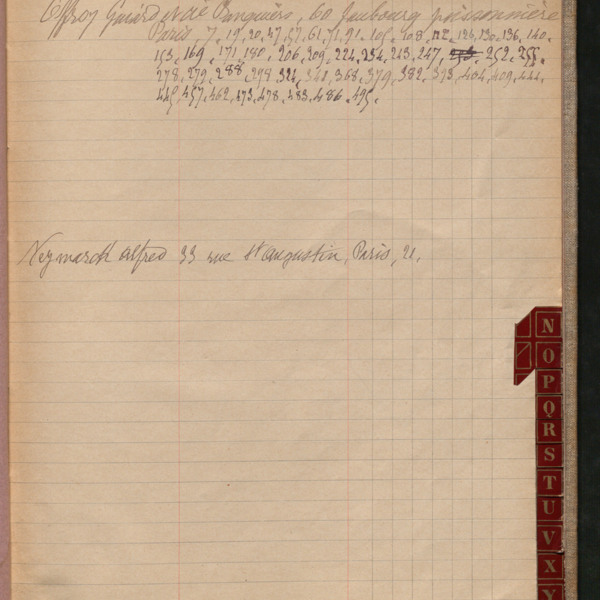 Offroy Guiard et Cie Banquiers, 60 faubourg poissonnière
Paris 7, 19, 20, 47, 57, 61, 71, 91, 105, 108, 112, 126, 130, 136, 140,
153, 169, 171, 180, 206, 209, 224, 234, 243, 247, 252, 255,
278, 279, 288, 298, 321, 340, 368, 379, 382, 393, 404, 409, 444,
445, 457, 462, 473, 478, 483, 486, 495.
Neymarck alfred 33 rue St augustin, Paris, 21.
N
O
P
Q
R
S
T
U
V
X
Y